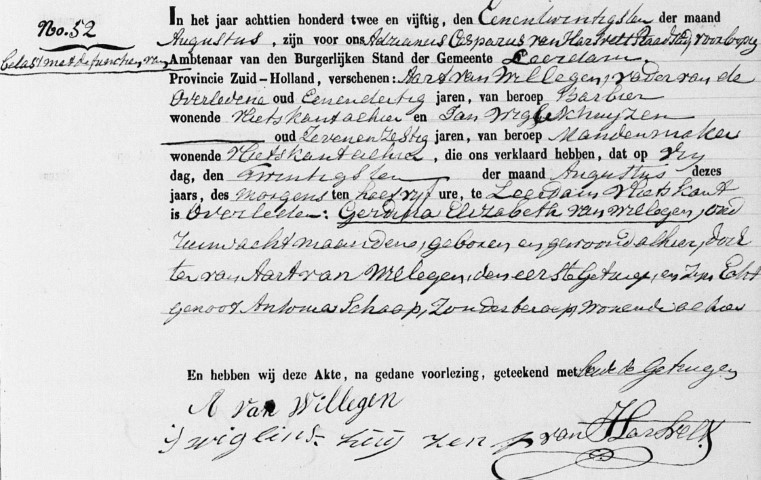 No. 52
belast met de functien van
In het jaar achttien honderd twee en vijftig, den Eenentwintigsten der maand
Augustus, zijn voor ons Adrianus Casparus van Harsvelt Raadslid voorloopig
Ambtenaar van den Burgerlijken Stand der Gemeente Leerdam
Provincie Zuid-Holland, verschenen: Aart van Willegen, vader van de
Overledene oud Eenendertig jaren, van beroep Barbier
wonende Vlietskant alhier en Jan Wiglinshuijzen
oud Zevenenzestig jaren, van beroep Mandenmaker
wonende Vlietskant alhier, die ons verklaard hebben, dat op Vrij
dag, den Twintigsten der maand Augustus dezes
jaars, des morgens ten half vijf ure, te Leerdam Vlietskant
is Overleden: Gerdina Elizabeth van Willegen, oud
acht maanden, geboren en gewoond alhier, doch
ter van Aart van Willegen, den eerste Getuige, en zijn Echt
genoot Antonia Schaap, Zonder beroep, wonende alhier
En hebben wij deze Akte, na gedane voorlezing, geteekend met beide de Getuigen
A van Willegen
J wiglins huij zen
van Harsvelt